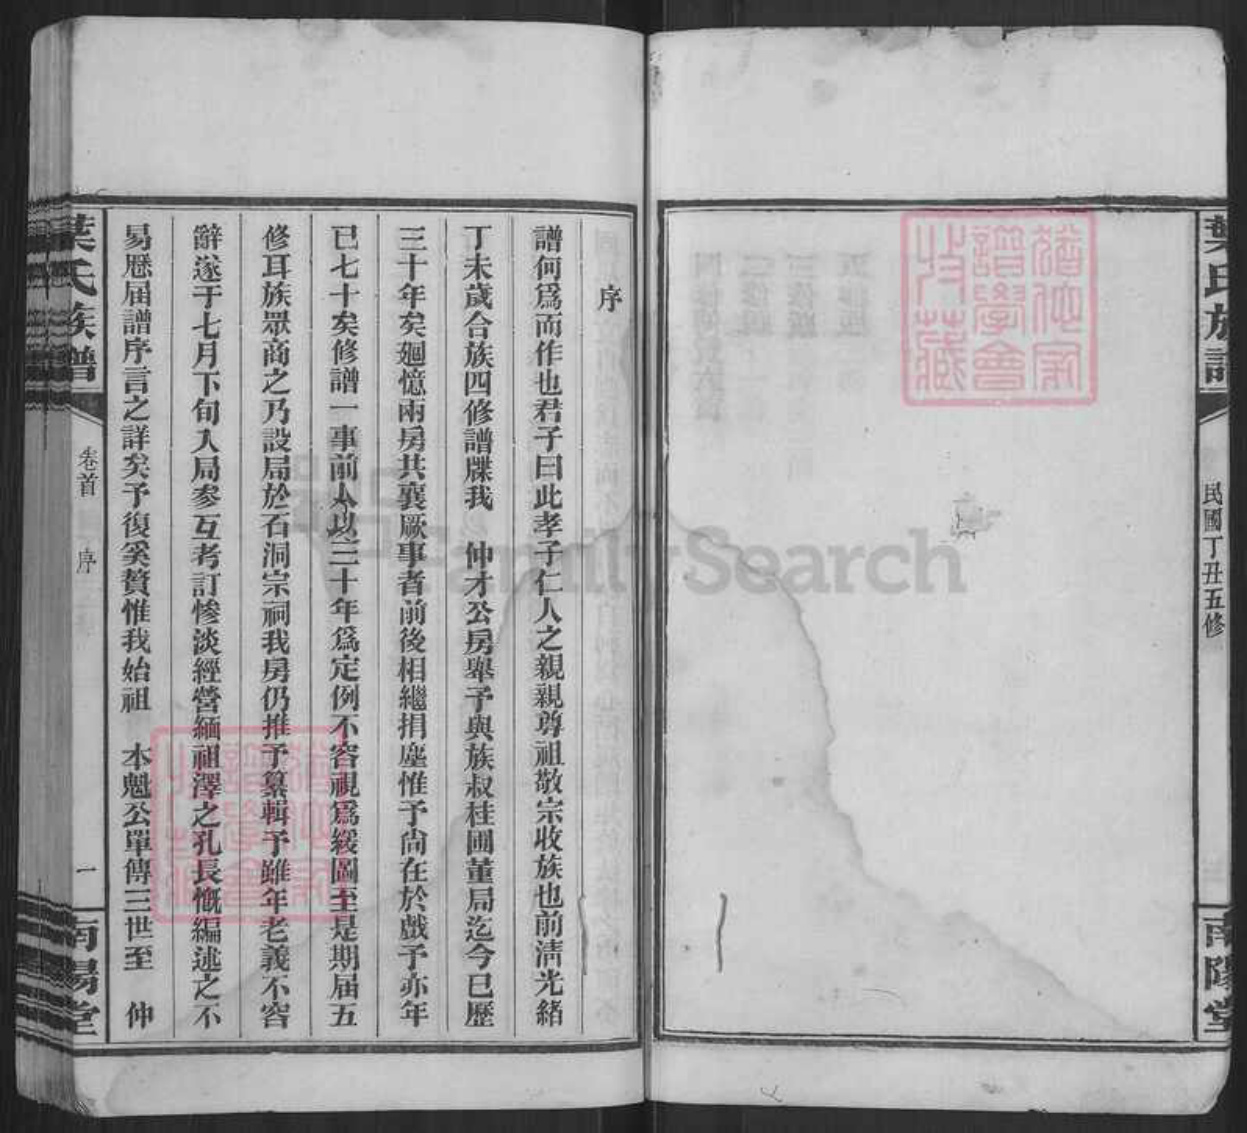 葉氏族譜
民國丁丑五修
南陽堂
序
譜何爲而作也君子曰此孝子仁人之親親尊祖敬宗收族也前淸光緒
丁未歲合族四修譜牒我　仲才公房舉予與族叔桂圃董局迄今已歷
三十年矣廻憶兩房共襄厥事者前後相繼捐塵惟予尙在於戲予亦年
已七十矣修譜一事前人以三十年爲定例不容視爲緩圖至是期届五
修耳族眾商之乃設局於石洞宗祠我房仍推予纂輯予雖年老義不容
辭遂于七月下旬入局參互考訂慘淡經營緬祖澤之孔長慨編述之不
易歷届譜序言之詳矣予復奚贅惟我始祖　本魁公單傳三世至　仲
葉氏族譜
卷首
序
一
南陽堂
譜學會
收藏
FamilySearch